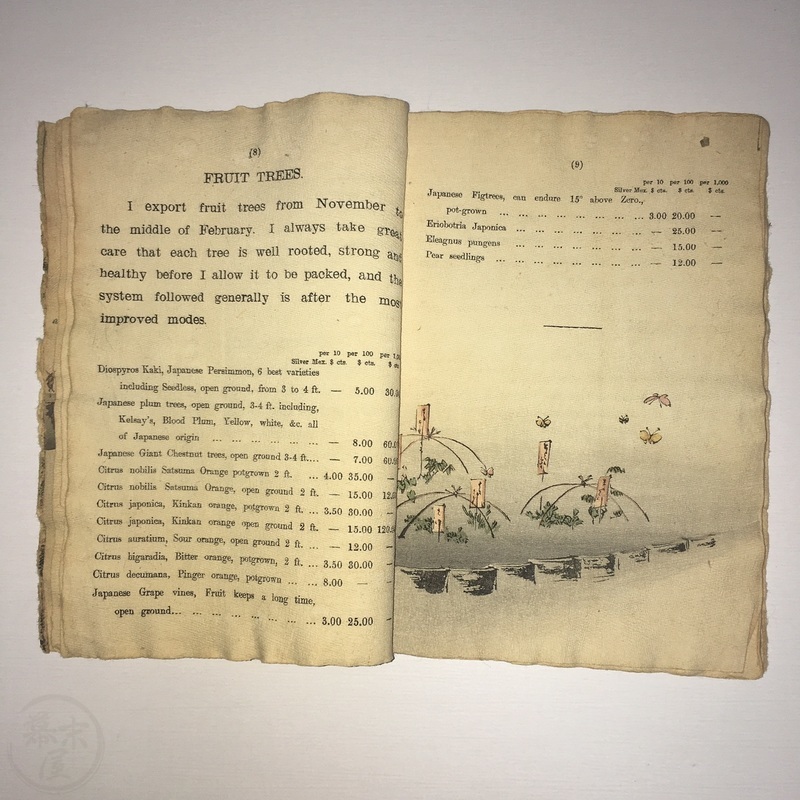 (8)
FRUIT TREES.
I export fruit trees from November to
the middle of February. I always take great
care that each tree is well rooted, strong and
healthy before I allow it to be packed, and the
system followed generally is after the most
improved modes.
per 10 per 100 per
Silver Mex. $ cts. $ cts. $
Diospyros Kaki, Japanese Persimmon, 6 best varieties
including Seedless, open ground, from 3 to 4 ft. — 5.00 30.
Japanese plum trees, open ground, 3-4 ft. including,
Kelsay's, Blood Plum, Yellow, white, &c. all
of Japanese origin ... ... ... ... ... ... — 8.00 60.
Japanese Giant Chestnut trees, open ground 3-4 ft.... — 7.00 60.
Citrus nobilis Satsuma Orange potgrown 2 ft. ... 4.00 35.00 —
Citrus nobilis Satsuma Orange, open ground 2 ft. — 15.00 12.
Citrus japonica, Kinkan orange, potgrown 2 ft. ... 3.50 30.00 —
Citrus japonica, Kinkan orange open ground 2 ft. — 15.00 120.
Citrus auratium, Sour orange, open ground 2 ft. ... — 12.00 —
Citrus bigaradia, Bitter orange, potgrown, 2 ft. ... 3.50 30.00 —
Citrus decumana, Pinger orange, potgrown ... ... 8.00 — —
Japanese Grape vines, Fruit keeps a long time,
open ground... ... ... ... ... ... ... 3.00 25.00 —
(9)
per 10 per 100 per 1,000
Silver Mex. $ cts. $ cts. $ cts.
Japanese Figtrees, can endure 15° above Zero.,
pot-grown ... ... ... ... ... ... ... ... 3.00 20.00 —
Eriobotria Japonica ... ... ... ... ... ... — 25.00 —
Eleagnus pungens ... ... ... ... ... ... — 15.00 —
Pear seedlings ... ... ... ... ... ... ... — 12.00 —
幕末
屋